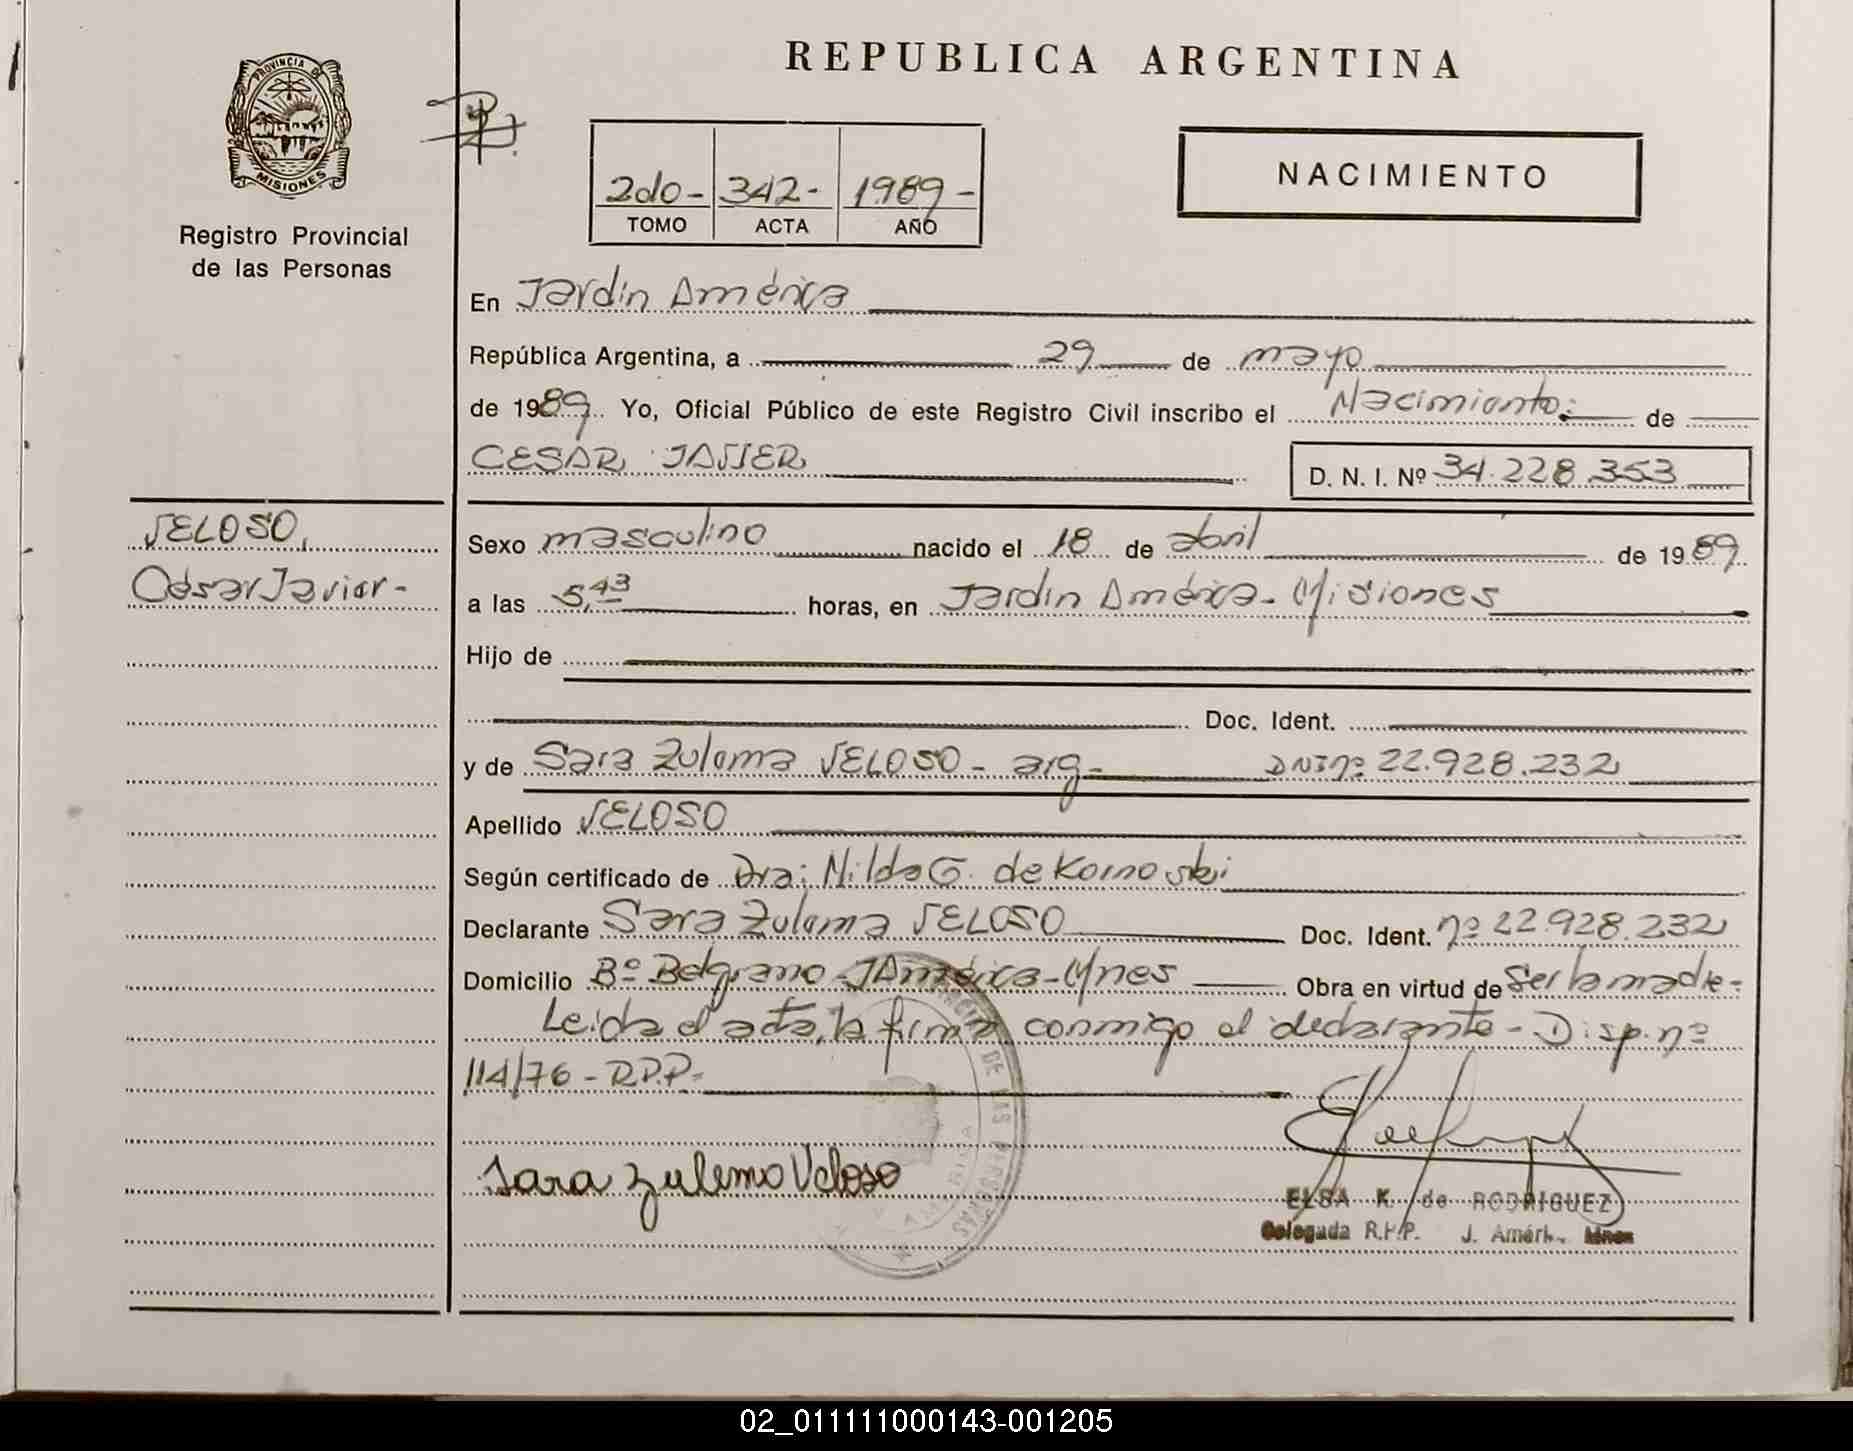 REPUBLICA ARGENTINA
PROVINCIA DE
MISIONES
Registro Provincial
de las Personas
2do- 342- 1989-
TOMO ACTA AÑO
NACIMIENTO
En Jardín América
República Argentina, a 29 de mayo
de 1989. Yo, Oficial Público de este Registro Civil inscribo el Nacimiento: de
CESAR JAVIER
D. N. I. Nº 34.228.353
VELOSO,
César Javier-
Sexo masculino nacido el 18 de abril de 1989
a las 5,43 horas, en Jardín América- Misiones
Hijo de
Doc. Ident.
y de Sara Zulema VELOSO - arg- DNI nº 22.928.232
Apellido VELOSO
Según certificado de Dra: Nilda G. de
Declarante Sara Zulema VELOSO Doc. Ident. nº 22.928.232
Domicilio Bº Belgrano - J América - Mnes Obra en virtud de Ser la madre-
Leida el acta, la firma conmigo el declarante - Disp. nº
114/76 - R.P.P.-
DE LAS PERSONAS
Sara Zulema Veloso
ELSA K. de RODRIGUEZ
Delegada R.P.P. J. Améri. Mnes
02_011111000143-001205